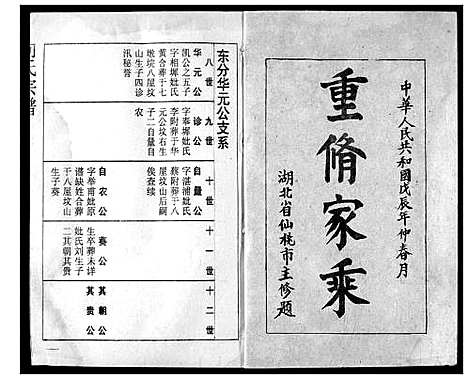 中華人民共和國戊辰年仲春月
重脩家乘
湖北省仙桃市主修題
东分华元公支系
八世
华元公
凯公之五子
字相墀妣氏
黄合葬于七
墩垸八屋坟
山生子四诊
汛秘誉
九世
诊公
字奉墀妣氏
李附葬于华
元公坟右生
子二自量自
农
十世
自量公
字湛浦妣氏
蔡附葬于八
屋坟山后嗣
俟查续
自农公
字举甫妣原
谱缺姓合葬
于八屋坟山
生子葵
十一世
葵公
生卒葬未详
妣氏刘生子
二其朝其贵
十二世
其朝公
其贵公